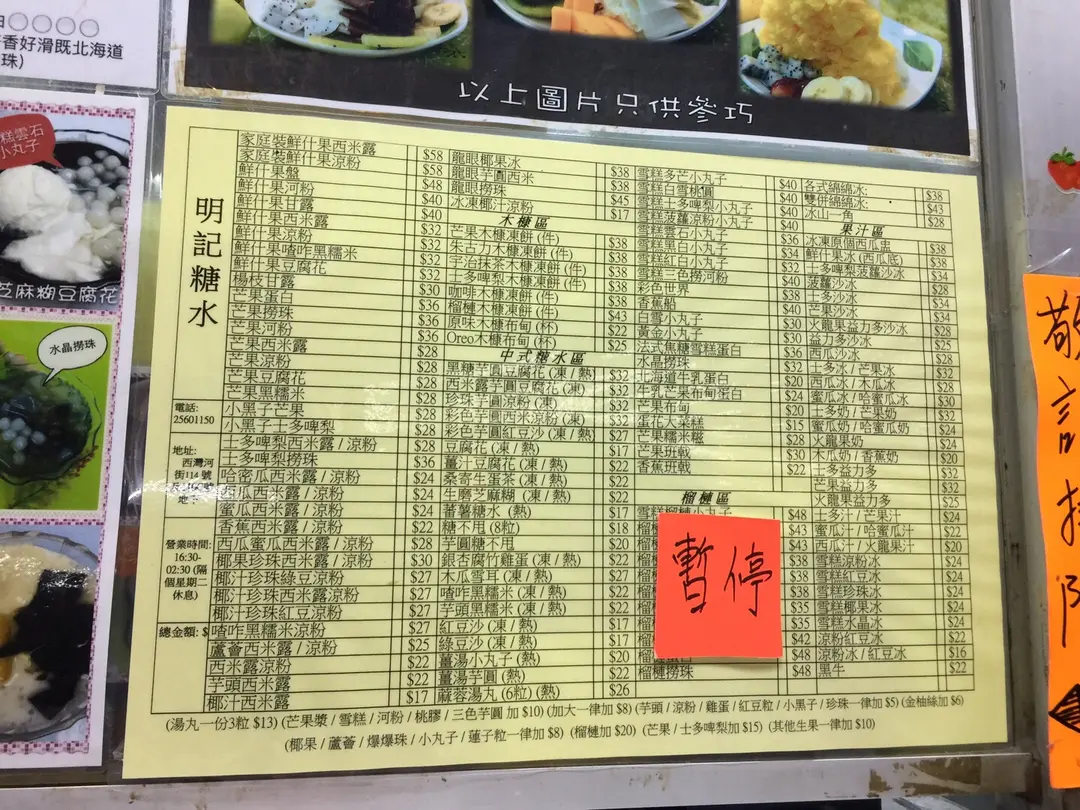 香好滑既北海道
珠)
以上圖片只供參巧
糕雲石
小丸子
芝麻糊豆腐花
水晶撈珠
明記糖水
電話:
25601150
地址:
西灣河
街114號
營業時間:
16:30-
02:30 (隔
個星期二
休息)
總金額: $
家庭裝鮮什果西米露 $58
家庭裝鮮什果涼粉 $48
鮮什果盤 $40
鮮什果河粉 $40
鮮什果甘露 $32
鮮什果西米露 $32
鮮什果涼粉 $32
鮮什果喳咋黑糯米 $32
鮮什果豆腐花 $30
楊枝甘露 $36
芒果蛋白 $36
芒果撈珠 $36
芒果河粉 $28
芒果西米露 $28
芒果涼粉 $28
芒果豆腐花 $28
芒果黑糯米 $28
小黑子芒果
小黑子士多啤梨
士多啤梨西米露 / 涼粉 $28
士多啤梨撈珠 $36
哈密瓜西米露 / 涼粉 $24
西瓜西米露 / 涼粉 $24
蜜瓜西米露 / 涼粉 $24
香蕉西米露 / 涼粉 $22
西瓜蜜瓜西米露 / 涼粉 $28
椰果珍珠西米露 / 涼粉 $30
椰汁珍珠綠豆涼粉 $27
椰汁珍珠西米露涼粉 $27
椰汁珍珠紅豆涼粉 $27
喳咋黑糯米涼粉 $27
蘆薈西米露 / 涼粉 $25
西米露涼粉 $22
芋頭西米露 $22
椰汁西米露 $17
龍眼椰果冰 $38
龍眼芋圓西米 $38
龍眼撈珠 $45
冰凍椰汁涼粉 $17
木糠區
芒果木糠凍餅 (件) $38
朱古力木糠凍餅 (件) $38
宇治抹茶木糠凍餅 (件) $38
士多啤梨木糠凍餅 (件) $38
咖啡木糠凍餅 (件) $38
榴槤木糠凍餅 (件) $43
原味木糠布甸 (杯) $22
Oreo木糠布甸 (杯) $25
中式糖水區
黑糖芋圓豆腐花 (凍 / 熱) $32
西米露芋圓豆腐花 (凍) $32
珍珠芋圓涼粉 (凍) $32
彩色芋圓西米涼粉 (凍) $32
彩色芋圓紅豆沙 (凍 / 熱) $27
豆腐花 (凍 / 熱) $17
薑汁豆腐花 (凍 / 熱) $22
桑寄生蛋茶 (凍 / 熱) $22
生磨芝麻糊 (凍 / 熱) $22
蕃薯糖水 (熱) $17
糖不甩 (8粒) $18
芋圓糖不甩 $22
銀杏腐竹雞蛋 (凍 / 熱) $22
木瓜雪耳 (凍 / 熱) $27
喳咋黑糯米 (凍 / 熱) $22
芋頭黑糯米 (凍 / 熱) $22
紅豆沙 (凍 / 熱) $17
綠豆沙 (凍 / 熱) $17
薑湯小丸子 (熱) $20
薑湯芋圓 (熱) $22
麻蓉湯丸 (6粒) (熱) $26
雪糕多芒小丸子 $40
雪糕白雪桃圓 $40
雪糕士多啤梨小丸子 $40
雪糕菠蘿涼粉小丸子 $40
雪糕雲石小丸子 $36
雪糕黑白小丸子 $34
雪糕紅白小丸子 $32
雪糕三色撈河粉 $40
彩色世界 $38
香蕉船 $40
白雪小丸子 $30
黃金小丸子 $30
法式焦糖雪糕蛋白 $36
水晶撈珠 $32
北海道牛乳蛋白 $20
牛乳芒果布甸蛋白 $24
芒果布甸 $20
蛋花大菜糕 $15
芒果糯米糍 $28
芒果班戟 $30
香蕉班戟 $22
榴槤區
雪糕榴槤小丸子 $48
$43
$43
$38
$38
$35
$35
$42
$48
榴槤撈珠 $48
暫停
各式綿綿冰: $38
雙併綿綿冰: $43
冰山一角 $28
果汁區
冰凍原個西瓜盅 $38
鮮什果冰 (西瓜底) $38
士多啤梨菠蘿沙冰 $34
菠蘿沙冰 $28
士多沙冰 $34
芒果沙冰 $28
火龍果益力多沙冰 $28
益力多沙冰 $25
西瓜沙冰 $28
士多冰 / 芒果冰 $32
西瓜冰 / 木瓜冰 $28
蜜瓜冰 / 哈蜜瓜冰 $30
士多奶 / 芒果奶 $24
蜜瓜奶 / 哈蜜瓜奶 $24
火龍果奶 $24
木瓜奶 / 香蕉奶 $20
士多益力多 $32
芒果益力多 $22
火龍果益力多 $25
士多汁 / 芒果汁 $24
蜜瓜汁 / 哈蜜瓜汁 $22
西瓜汁 / 火龍果汁 $20
雪糕涼粉冰 $24
雪糕紅豆冰 $24
雪糕珍珠冰 $24
雪糕椰果冰 $24
雪糕水晶冰 $24
涼粉紅豆冰 $22
涼粉冰 / 紅豆冰 $16
黑牛 $22
(湯丸一份3粒 $13) (芒果漿 / 雪糕 / 河粉 / 桃膠 / 三色芋圓 加 $10) (加大一律加 $8) (芋頭 / 涼粉 / 雞蛋 / 紅豆粒 / 小黑子 / 珍珠一律加 $5) (金柚絲加 $6)
(椰果 / 蘆薈 / 爆爆珠 / 小丸子 / 蓮子粒一律加 $8) (榴槤加 $20) (芒果 / 士多啤梨加 $15) (其他生果一律加 $10)